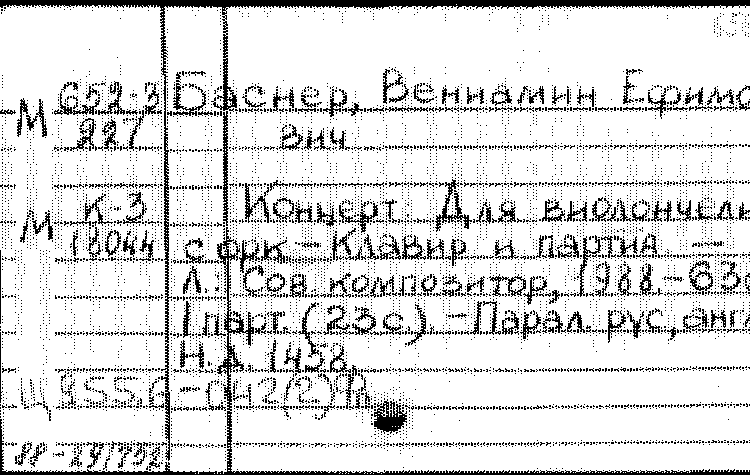 М 652-3 Баснер, Вениамин Ефимо
227 вич
М К-3 Концерт Для виолончель
18044 с орк – Клавир и партия —
Л.: Сов. композитор, 1988.-63с
1 парт. (23с.). – Парал. рус, англ
Н.Д. 1458
Щ 955.6-042(2)